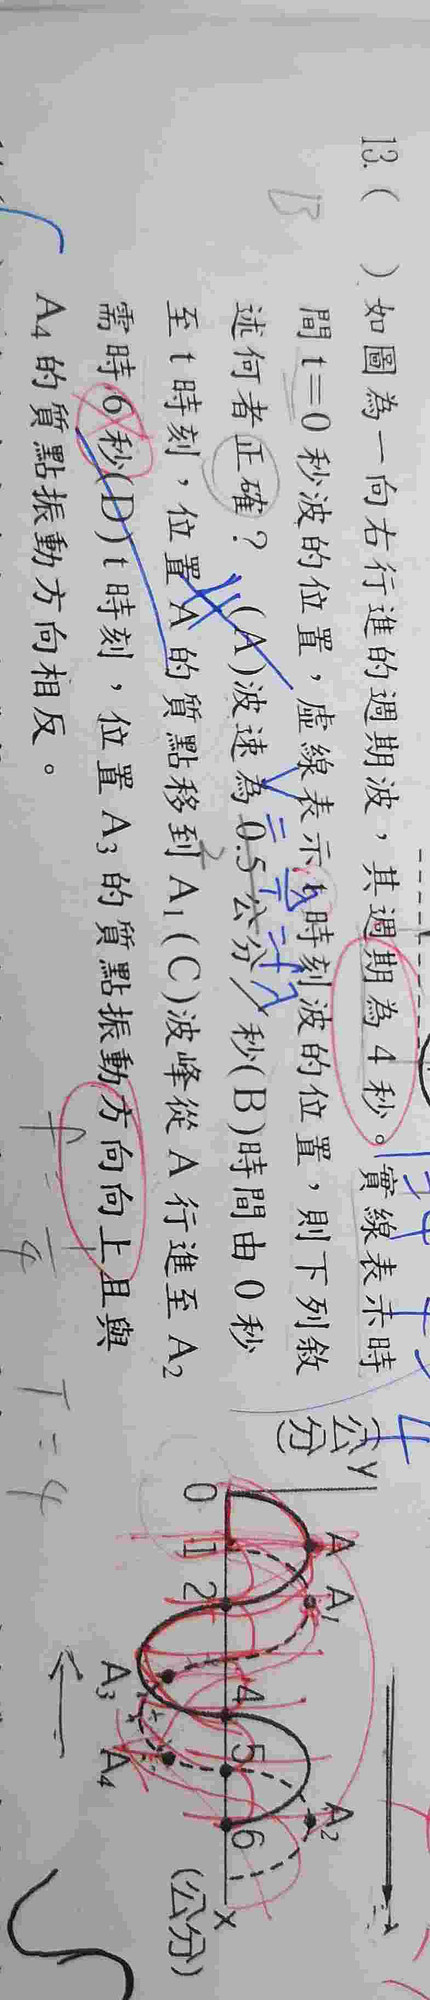 13.(　)如圖為一向右行進的週期波，其週期為4秒。實線表示時
間t=0秒波的位置，虛線表示t時刻波的位置，則下列敘
述何者正確？(A)波速為0.5公分／秒(B)時間由0秒
至t時刻，位置A的質點移到A₁(C)波峰從A行進至A₂
需時6秒(D)t時刻，位置A₃的質點振動方向向上且與
A₄的質點振動方向相反。
B
T=4
y
(公分)
A A₁ A₂
0 1 2 4 5 6 x
(公分)
A₃ A₄